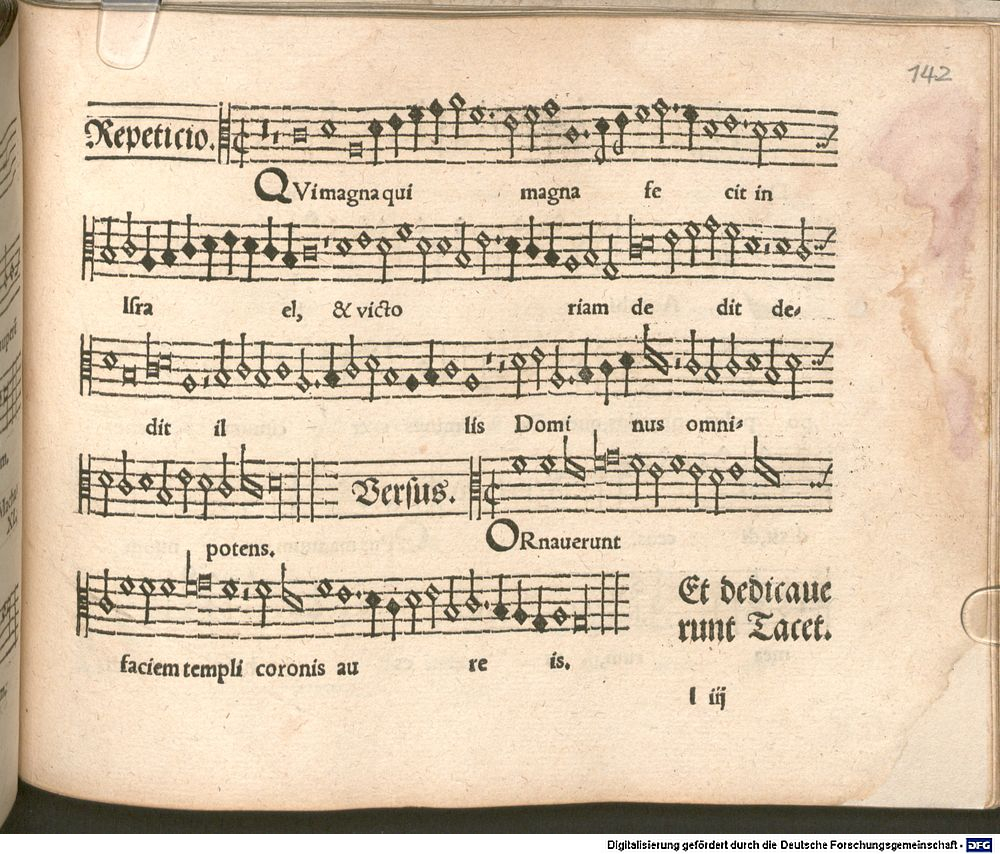 142
Repeticio.
QVi magna qui magna fe cit in
Isra el, & victo riam de dit de-
dit il lis Domi nus omni-
potens.
Versus.
ORnauerunt
faciem templi coronis au re is.
Et dedicaue
runt Tacet.
l iij
Digitalisierung gefördert durch die Deutsche Forschungsgemeinschaft - DFG